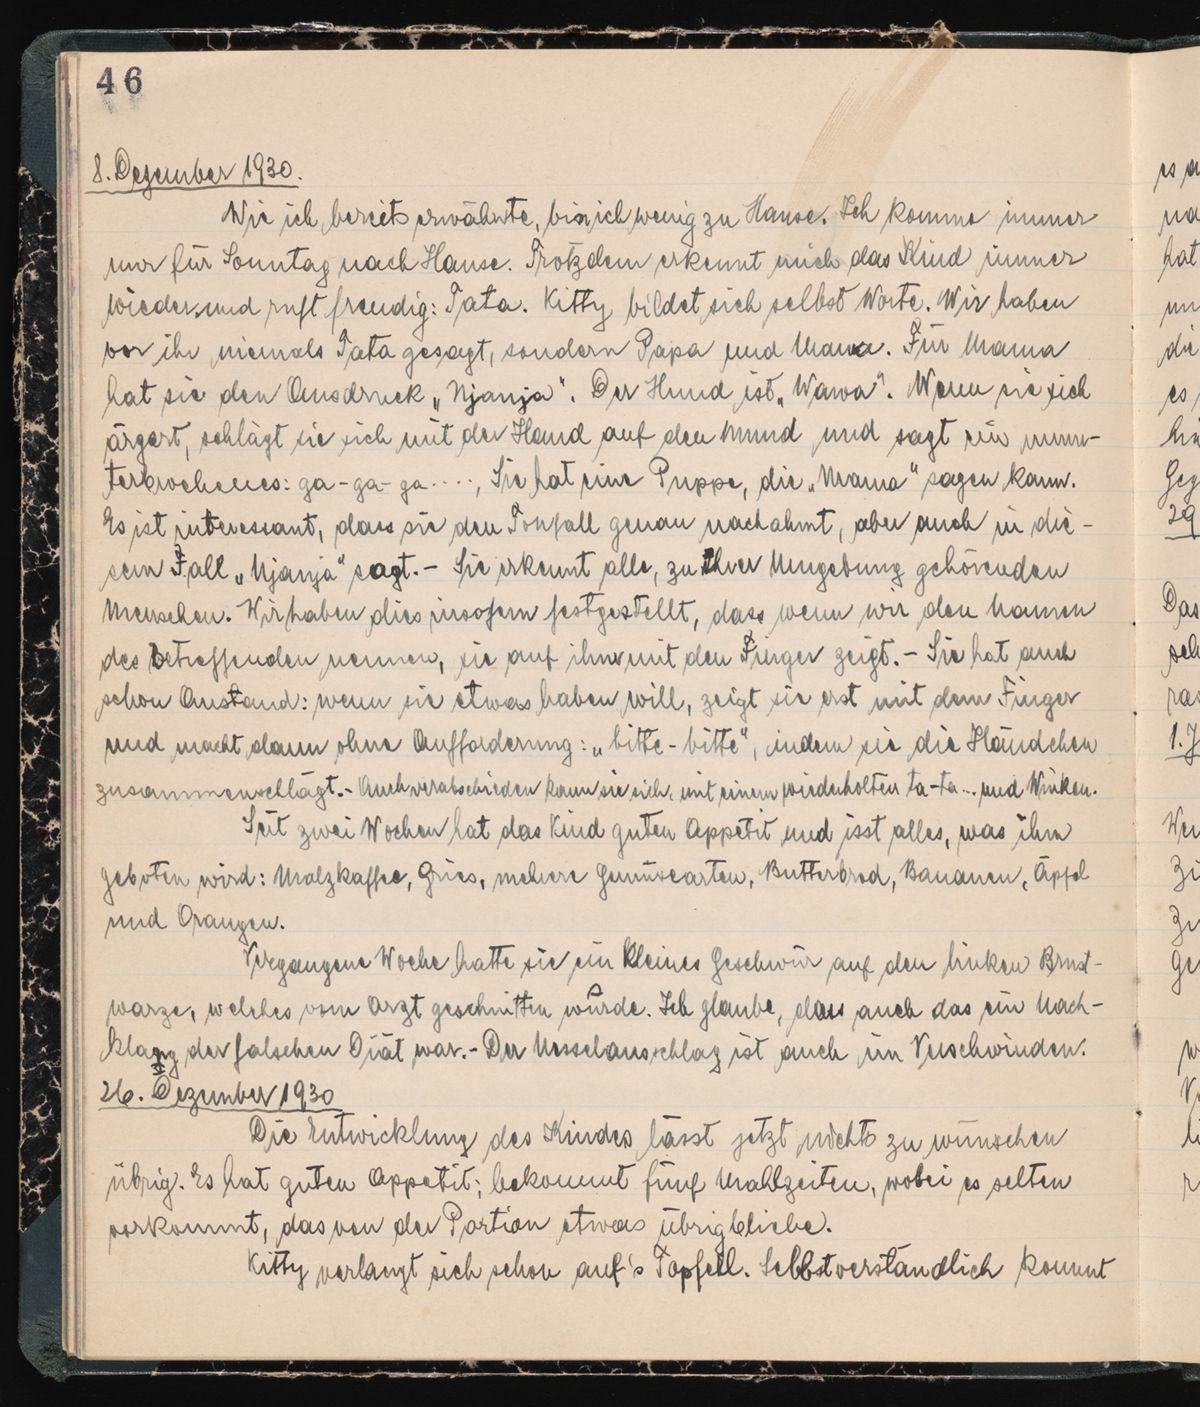 46
8. Dezember 1930.
Wie ich bereits erwähnte, bin ich wenig zu Hause. Ich komme immer
nur für Sonntag nach Hause. Trotzdem erkennt mich das Kind immer
wieder und ruft freudig: Tata. Kitty bildet sich selbst Worte. Wir haben
vor ihr niemals Tata gesagt, sondern Papa und Mama. Für Mama
hat sie den Ausdruck „Njanja". Der Hund ist „Wawa". Wenn sie sich
ärgert, schlägt sie sich mit der Hand auf den Mund und sagt ein unun-
terbrochenes: ga-ga-ga...., Sie hat eine Puppe, die „Mama" sagen kann.
Es ist interessant, dass sie den Tonfall genau nachahmt, aber auch in die-
sem Fall „Njanja" sagt.- Sie erkennt alle, zu Ihrer Umgebung gehörenden
Menschen. Wir haben dies insofern festgestellt, dass wenn wir den Namen
des betreffenden nennen, sie auf ihn mit den Finger zeigt.- Sie hat auch
schon Anstand: wenn sie etwas haben will, zeigt sie erst mit dem Finger
und macht dann ohne Aufforderung: „bitte-bitte", indem sie die Händchen
zusammenschlägt.- Auch verabschieden kann sie sich, mit einem wiederholten ta-ta... und Winken.
Seit zwei Wochen hat das Kind guten Appetit und isst alles, was ihm
geboten wird: Malzkaffee, Gries, mehrere Gemüsearten, Butterbrod, Bananen, Äpfel
und Orangen.
Vergangene Woche hatte sie ein kleines Geschwür auf den linken Brust-
warze, welches vom Arzt geschnitten wurde. Ich glaube, dass auch das ein Nach-
klang der falschen Diät war.- Der Nesselausschlag ist auch im Verschwinden.
26. Dezember 1930
Die Entwicklung des Kindes lässt jetzt nichts zu wünschen
übrig. Es hat guten Appetit; bekommt fünf Mahlzeiten, wobei es selten
vorkommt, das von der Portion etwas übrigbliebe.
Kitty verlangt sich schon auf's Topferl. Selbstverständlich kommt